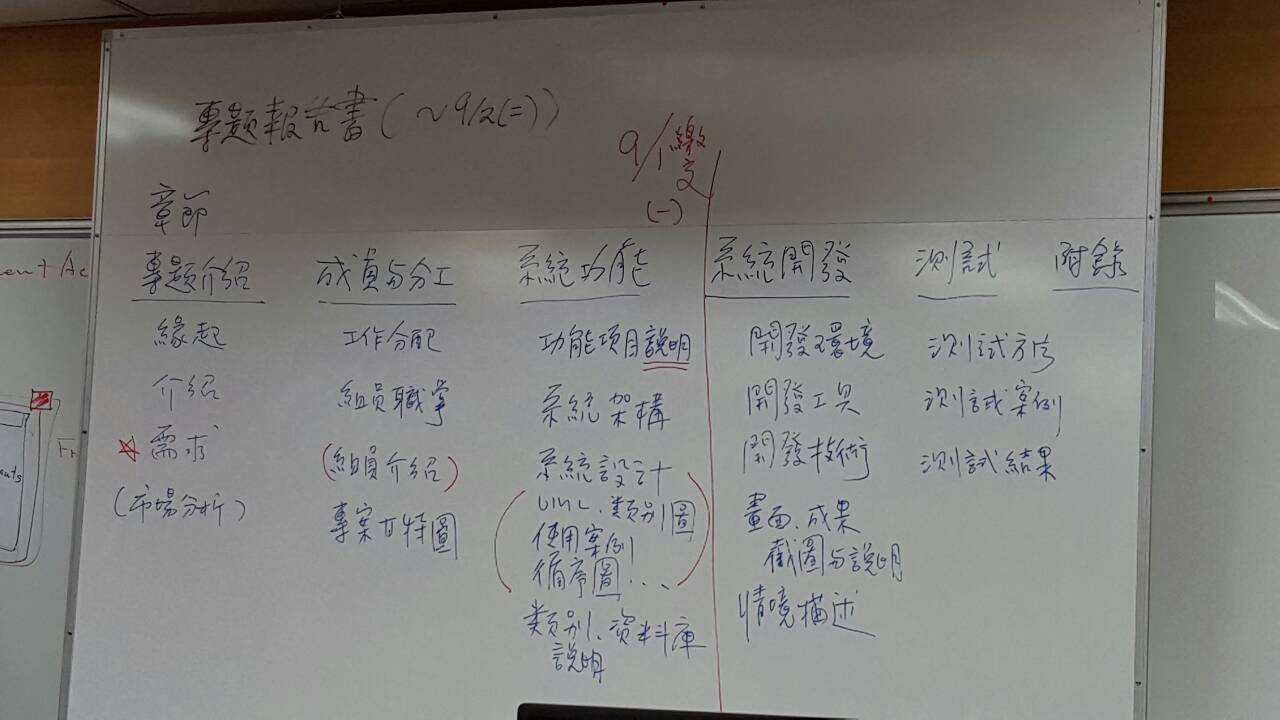 專題報告書(～9/2(二))
9/1繳交
(一)
章節
專題介紹
緣起
介紹
需求
(市場分析)
成員与分工
工作分配
組員職掌
(組員介紹)
專案甘特圖
系統功能
功能項目說明
系統架構
系統設計
UML、類別圖
使用案例
循序圖!...
類別、資料庫
說明
系統開發
開發環境
開發工具
開發技術
畫面、成果
截圖与說明
情境描述
測試
測試方法
測試案例
測試結果
附錄
ment Ac
Fr
nts